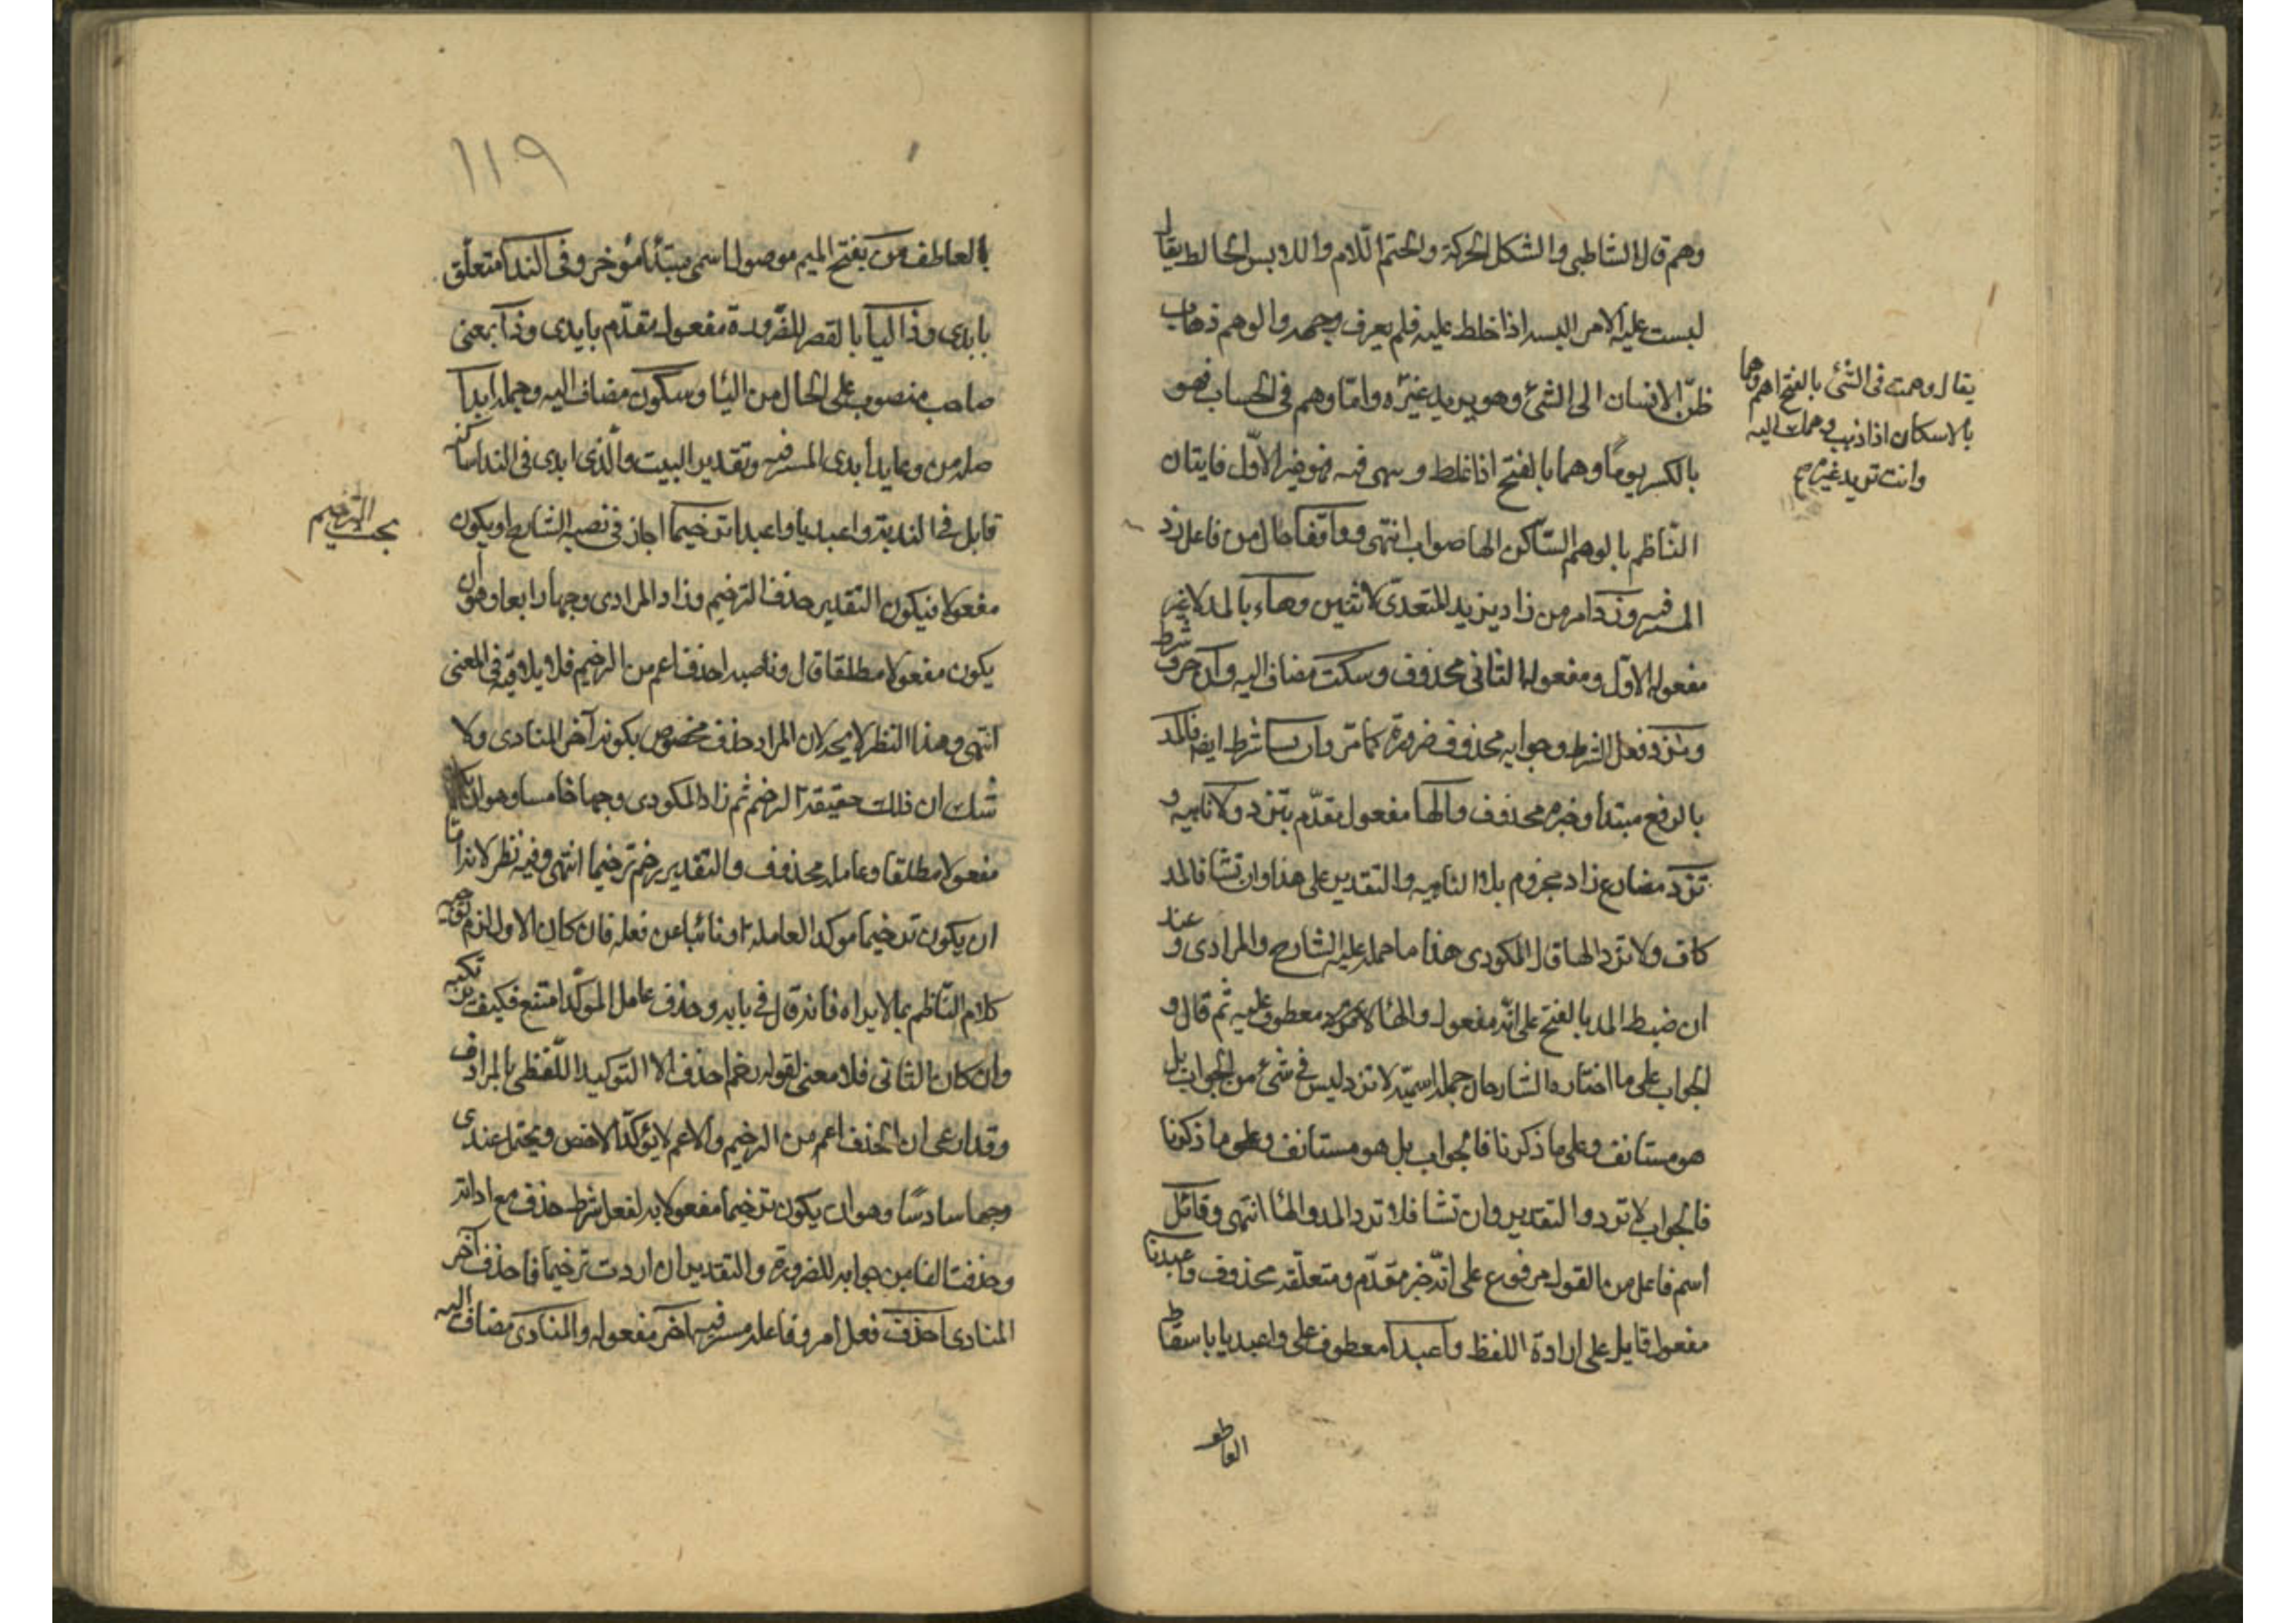 وهم قال الشاطبي والشكل الحركة والحتم اللام واللابس الخالط يقال
لبست عليه الامر البسه اذا خلط عليه فلم يعرف وجهه والوهم ذهاب
ظن الانسان الى الشئ وهو يريد غيره واما وهم في الحساب فهو
بالكسر يوما وهما بالفتح اذا غلط وسهى فيه فهو غير الاول فايتان
الناظم بالوهم الساكن الها صواب انتهى وواقفا حال من فاعل زد
المستتر فيه وزد امر من زاد يزيد المتعدى لاثنين وهاء بالمد لا غير
مفعوله الاول ومفعوله الثاني محذوف وسكت مضاف اليه وان حرف شرط
وترد فعل الشرط وجوابه محذوف ضرورة كما مر وان تشا شرط ايضا فالمد
بالرفع مبتدأ وخبره محذوف والها مفعول مقدم بتزد ولا ناهية و
تزد مضارع زاد مجزوم بلا الناهية والتقدير على هذا وان تشا فالمد
كاف ولا تزد الها قال المكودى هذا ما حمله عليه الشارح والمرادى وعندى
ان ضبط المد بالفتح على انه مفعول والها لا تزد معطوف عليه ثم قال و
الجواب على ما اختاره الشارحان جملة اسمية لا تزد ليس في شئ من الجواب بل
هو مستانف وعلى ما ذكرنا فالجواب بل هو مستانف وعلى ما ذكرنا
فالجواب لا تزد والتقدير وان تشا فلا تزد المد والها انتهى وقائل
اسم فاعل من القول مرفوع على انه خبر مقدم ومتعلقه محذوف واعبديا
مفعول قايل على ارادة اللفظ واعبدا معطوف على واعبديا باسقاط
العاطف
يقال وهمت في الشئ بالفتح اهم وهما
بالاسكان اذا ذهب وهمك اليه
وانت تريد غيره صح
١١٩
بالعاطف ومن بفتح الميم موصول اسمى مبتدأ مؤخر وفي الندا متعلق
بابدى وذا اليا بالقصر للضرورة مفعول مقدم بابدى وذا بمعنى
صاحب منصوب على الحال من اليا وسكون مضاف اليه وجملة ابدا
صلة من وعايد ابدى المستتر فيه وتقدير البيت والذى ابدى في الندا ساكنه
قايل في الندبة واعبديا واعبدا ترخيما اجاز في نصبه الشارح ان يكون
مفعولا فيكون التقدير حذف الترخيم وزاد المرادى وجها رابعا وهو ان
يكون مفعولا مطلقا قال وناصبه احذف اعم من الترخيم فلا يلاقيه في المعنى
انتهى وهذا النظر لا يجد لان المراد حذف مخصوص بكونه آخر المنادى ولا
شك ان ذلك حقيقة الترخيم ثم زاد المكودى وجها خامسا وهو ان يكون
مفعولا مطلقا وعامله محذوف والتقدير رخم ترخيما انتهى وفيه نظر لانه اما
ان يكون ترخيما موكدا لعامله او نائبا عن فعله فان كان الاول لزم توجيه
كلام الناظم بما لا يراه فانه قال في بابه وحذف عامل الموكد امتنع فكيف يرتكبه
وان كان الثاني فلا معنى لقوله رخم احذف الا التوكيد اللفظى بالمرادف
وقد ادعى ان الحذف اعم من الترخيم والاعم لا يؤكد الاخص ويحتمل عندى
وجها سادسا وهو ان يكون ترخيما مفعولا به لفعل شرط حذف مع اداته
وحذفت الفا من جوابه للضرورة والتقدير ان اردت ترخيما فاحذف آخر
المنادى احذف فعل امر وفاعله مستتر فيه آخر مفعوله والمنادى مضاف اليه
بحث الترخيم